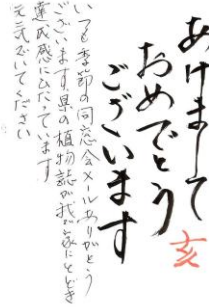 あけまして
おめでとう
ございます
亥
いつも季節の同窓会メールありがとう
ございます。県の植物誌が我が家にとどき
達成感にひたっています
元気でいてください